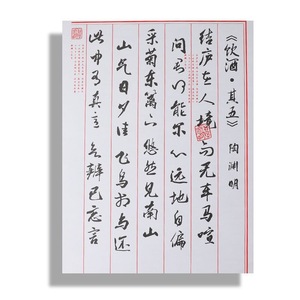 《饮酒·其五》
陶渊明
结庐在人境而无车马喧
问君何能尔心远地自偏
采菊东篱下悠然见南山
山气日夕佳飞鸟相与还
此中有真意欲辨已忘言